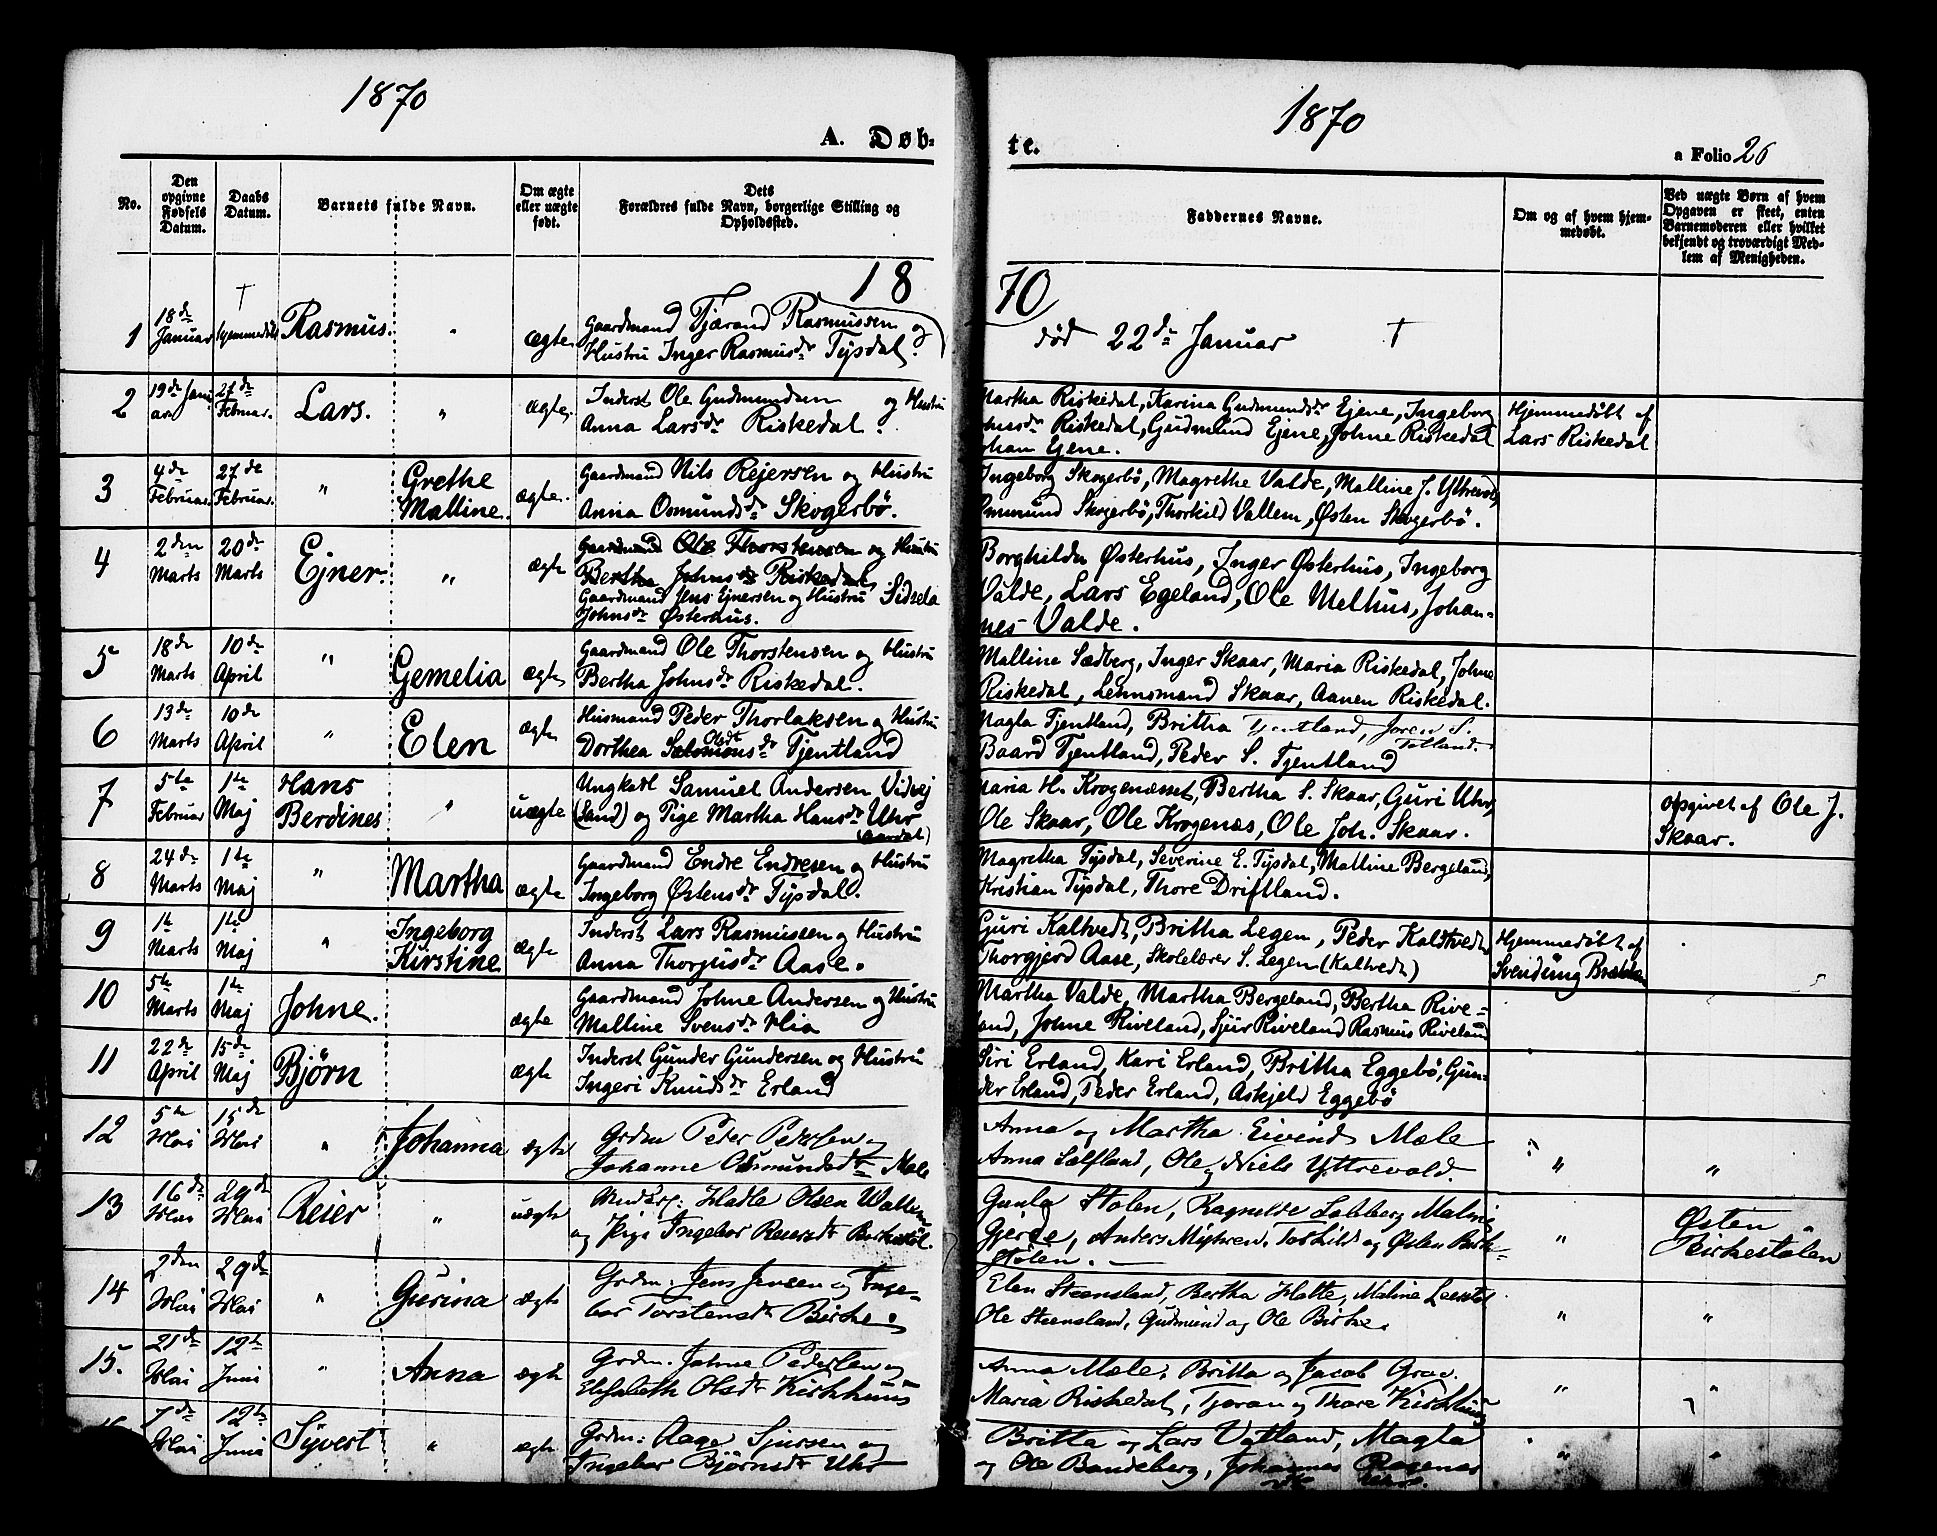 1870
A. Døb-
No.
Den opgivne Fødsels Datum.
Daabs Datum.
Barnets fulde Navn.
Om ægte eller uægte født.
Dets Forældres fulde Navn, borgerlige Stilling og Opholdssted.
18
1 18de Januar hjemmedøbt † Rasmus. " ægte Gaardmand Tjærand Rasmussen og
Hustru Inger Rasmusdr Tysdal.
2 19de Januar 27de Februar. Lars. " ægte. Inderst Ole Gudmundsen og Hustru
Anna Larsdr Riskedal.
3 4de Februar. 27de Februar. " Grethe Malline. ægte. Gaardmand Nils Rejersen og Hustru
Anna Osmundsdr Skogerbø.
4 2den Marts 20de Marts Ejner. " ægte Gaardmand Ole Thorstensen og Hustru
Bertha Johnsdr Riskedal.
Gaardmand Jens Ejnersen og Hustru Sidsela
Johnsdr Østerhus.
5 18de Marts 10de April " Gemelia ægte Gaardmand Ole Thorstensen og Hustru
Bertha Johnsdr Riskedal.
6 13de Marts 10de April " Elen ægte Husmand Peder Thorlaksen og Hustru
Dorthea Salomonsdr Olsdr Tjentland
7 5te Februar 1te Maj Hans Berdines " uægte Ungkarl Samuel Andersen Vidvej
(Sand) og Pige Martha Hansdr Uhr
(Aardal)
8 24de Marts 1te Maj " Martha ægte Gaardmand Endre Endresen og Hustru
Ingeborg Østensdr Tysdal.
9 1te Marts 1te Maj " Ingeborg Kirstine ægte Inderst Lars Rasmussen og Hustru
Anna Thorgilsdr Aase.
10 5te Marts 1te Maj Johne. ægte Gaardmand Johne Andersen og Hustru
Malline Svensdr Hia
11 22de April 15de Maj Bjørn ægte Inderst Gunder Gundersen og Hustru
Ingeri Knudsdr Erland
12 5te Mai 15de Mai " Johanna ægte Grdm Peter Pedersen og
Johanne Osmundsdtr Mæle
13 16de Mai 29de Mai Reier " uægte Hadle Olsen Wallem
og Pige Ingebor Reiersdtr Birkestøl.
14 2den Mai 29de Mai " Gurina ægte Grdm. Jens Jensen og Inge-
bor Torstensdtr Birke.
15. 21de Mai 12te Juni " Anna ægte Grdm. Johne Pedersen og
Elisabeth Olsdtr Kirkhuus
7de Mai 12te Juni Syvert " ægte Grdm: Aage Sjursen og
Ingebor Bjørnsdtr Uhr
1870
te.
a Folio 26
Faddernes Navne.
Om og af hvem hjem-medøbt.
Ved uægte Børn af hvem Opgaven er skeet, enten Barnemoderen eller hvilket bekjendt og troværdigt Med-lem af Menigheden.
70
død 22de Januar †
Martha Riskedal, Karina Gudmundsdr Ejene, Ingeborg Hjemmedøbt af
Johnsdr Riskedal, Gudmund Ejene, Johne Riskedal Lars Riskedal
Johan Ejene.
Ingeborg Skogerbø, Magrethe Valde, Malline J. Yttrevold,
Osmund Skogerbø, Thorkild Vallem, Østen Skogerbø.
Borghilda Østerhus, Inger Østerhus, Ingeborg
Valde, Lars Egeland, Ole Melhus, Johan-
nes Valde.
Malline Sædberg, Inger Skaar, Maria Riskedal, Johne
Riskedal, Lensmand Skaar, Aanen Riskedal.
Magla Tjentland, Britha Tjentland, Joren S. Totland.
Baard Tjentland, Peder S. Tjentland
Maria H. Krogenæsset, Bertha S. Skaar, Guri Uhr, opgivet af Ole J.
Ole Skaar, Ole Krogenæs, Ole Joh. Skaar. Skaar.
Magretha Tysdal, Severine E. Tysdal, Malline Bergeland,
Kristian Tysdal, Thore Driftland.
Guri Kaltvedt, Britha Legen, Peder Kaltvedt Hjemmedøbt af
Thorgjerd Aase, Skolelærer S. Legen (Kaltvedt) Svendung
Martha Valde, Martha Bergeland, Bertha Rive-
land, Johne Riveland, Sjur Riveland Rasmus Riveland
Siri Erland, Kari Erland, Britha Eggebø, Gun-
der Erland, Peder Erland, Askjeld Eggebø
Anna og Martha Eivind Mæle
Anna Ole og Niels Yttrevold. " "
Gunla Stølen, Ragnilde Maline Østen
Gjerde, Anders Myhren, Torkild og Østen Birk- " Birkestølen
stølen.
Elen Steensland, Bertha Hatte, Maline
Ole Steensland, Gudmund og Ole Birke. " "
Anna Mæle, Britta og Jacob
Maria Riskedal, Tjøran og Thore Kirkhuus " "
Britta og Lars Vatland, Magla
og Ole Bandeberg, Johannes " "